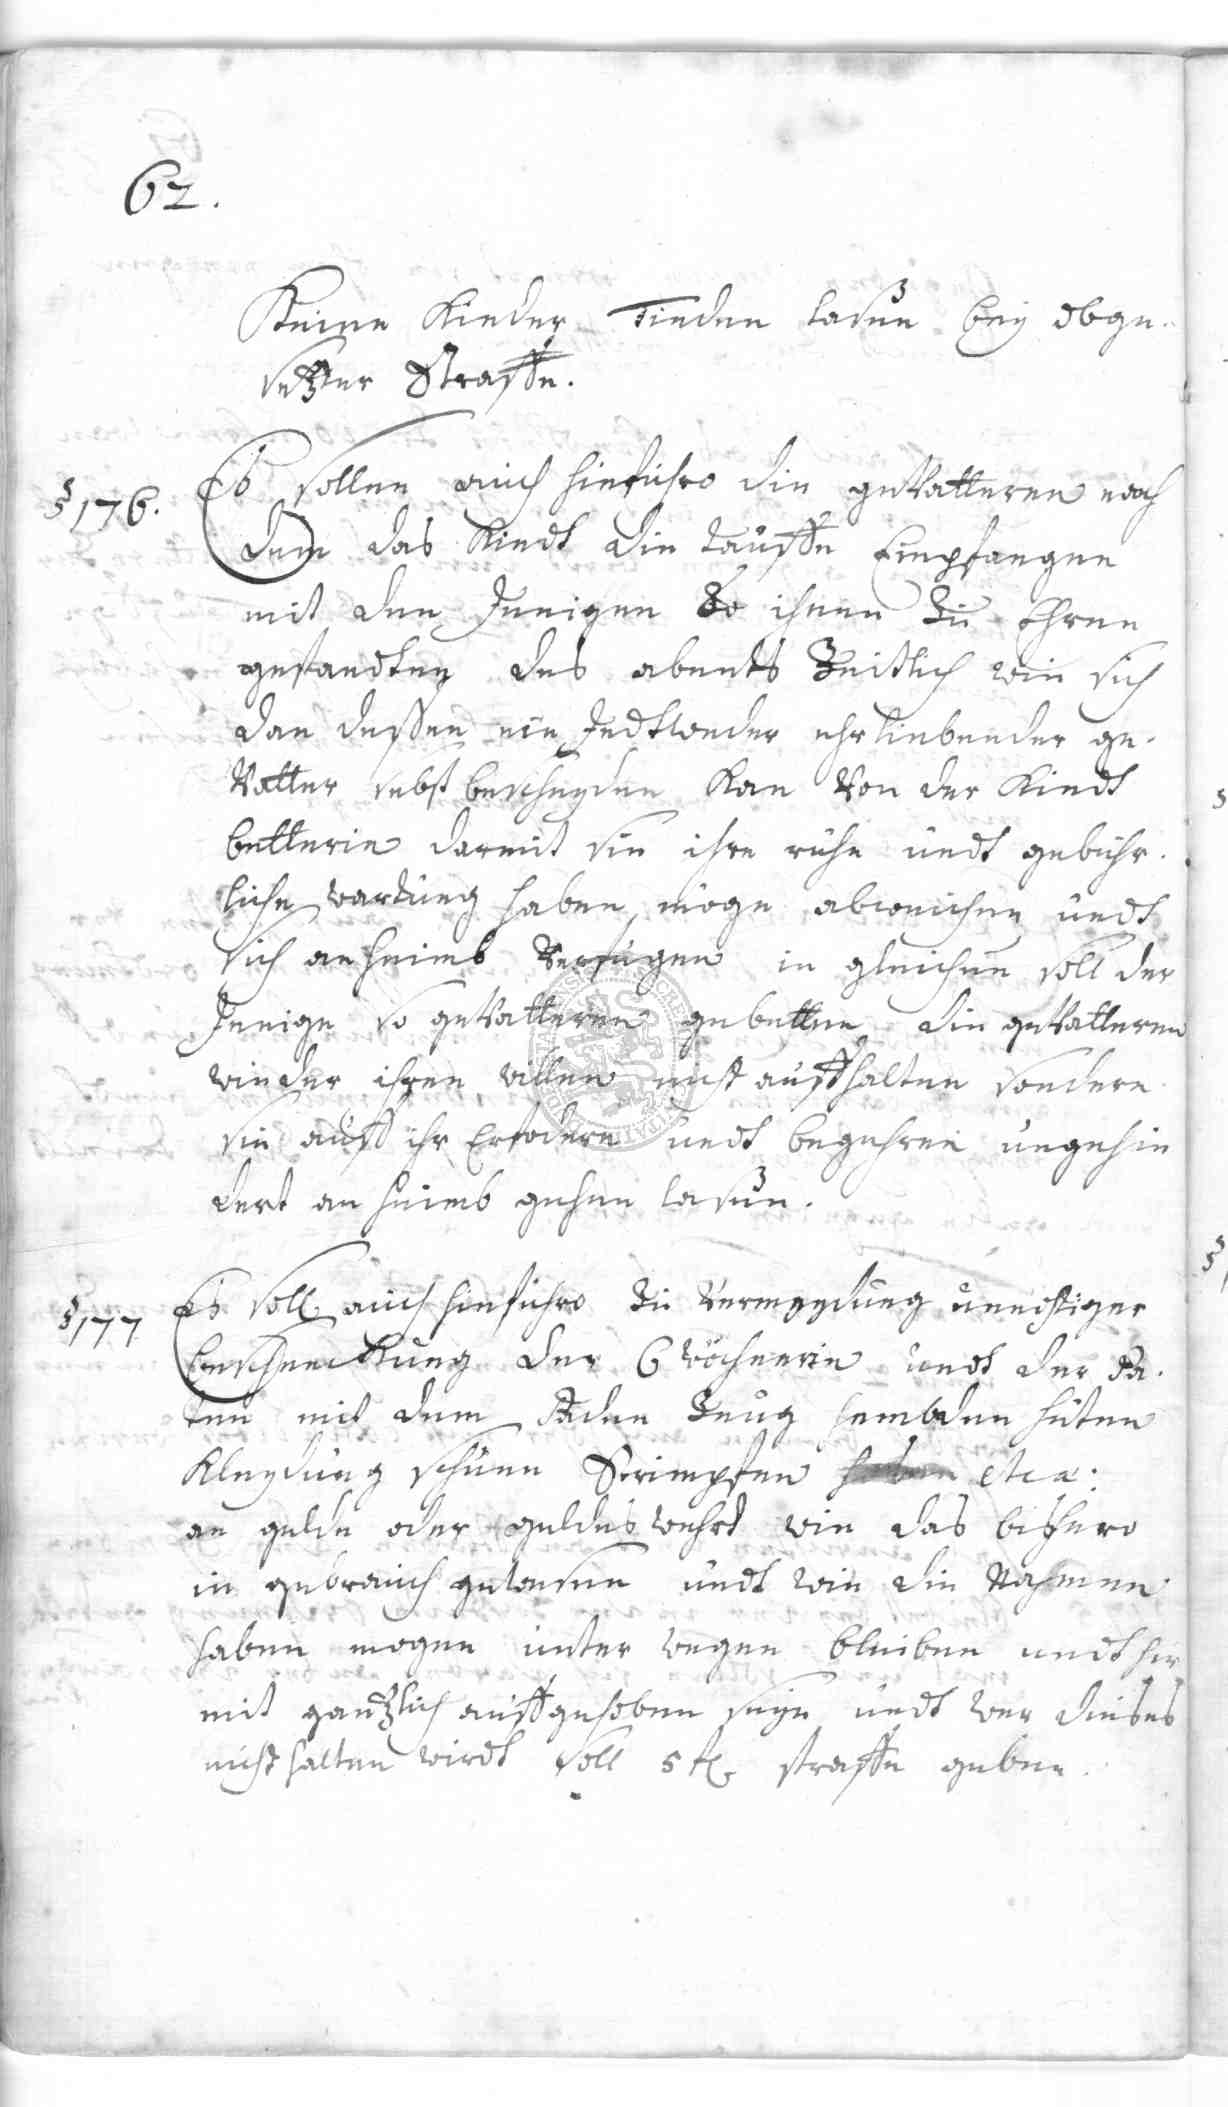 62.
Keine Kinder finden lasen bey obge-
setzter Straffe.
§ 176. Es sollen auch hinfuhro die geVatteren nach
dem das Kindt die tauffe Empfangen
mit den Jenigen So ihnen Zu Ehren
gestandten des abents Zeitlich wie sich
dan dessen ein Jedtweder ehrliebender ge-
Vatter sebst bescheyden Kan Von der Kindt
betterin darmit sie ihre ruhe undt gebuhr-
liche wartung haben möge abweichen undt
sich anheimb Verfugen in gleichen soll der
Jenige so geVatteren gebetten die geVatteren
wieder ihren willen nicht auffhalten sondern
sie auff ihr Erfodern undt begehren ungehin
dert an heimb gehen lasen.
§ 177 Es soll auch hinfuhro Zu Vermeydung unnöhtiger
beschenckung der 6 wöchnerin undt der Pa-
ten mit dem Paden Zeug hembden hüten
Kleydung schuen Strimpfen etca:
an gelde oder geldes wehrt wie das bishero
in gebrauch gewesen undt wie die Nahmen
haben mogen unter wegen bleiben undt hir
mit gantzlich auffgehoben seyn undt wer dieses
nicht halten wirdt soll 5 fl straffe geben.